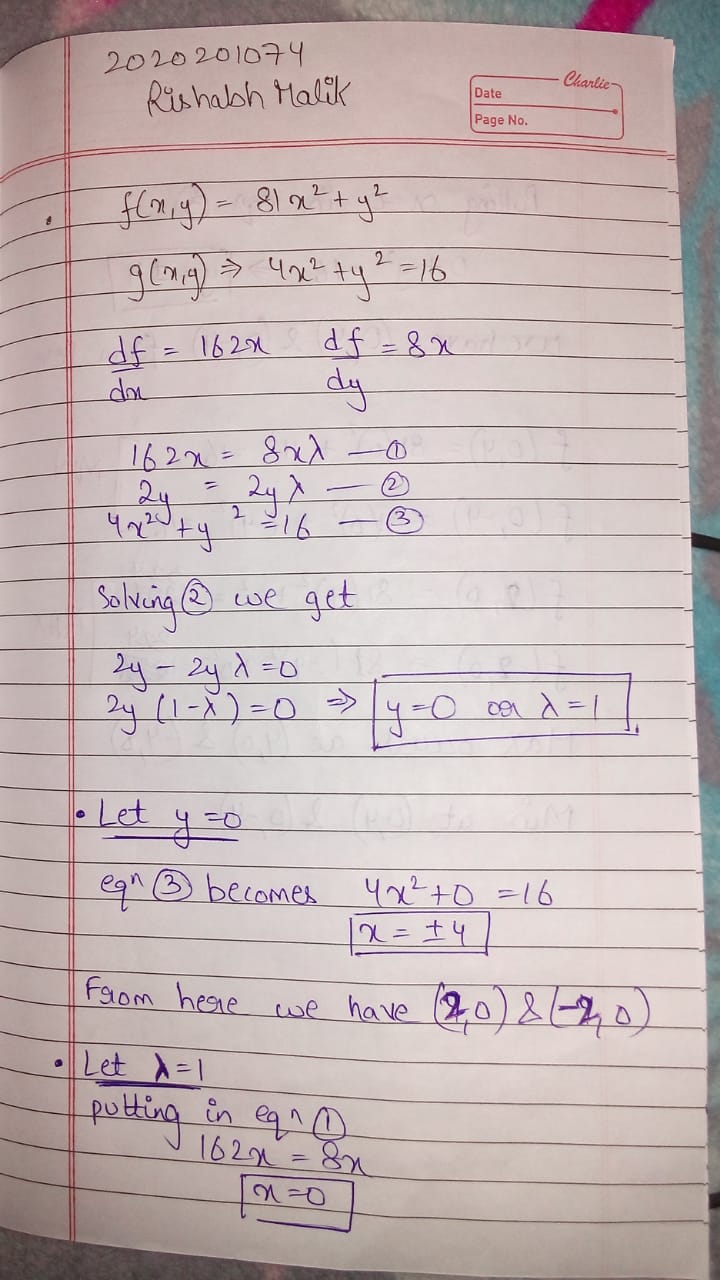 2020201074
Rishabh Malik
Charlie
Date
Page No.
f(x,y) = 81x² + y²
g(x,y) ⇒ 4x² + y² = 16
df/dx = 162x df/dy = 8x
162x = 8xλ — ①
2y = 2yλ — ②
4x² + y² = 16 — ③
Solving ② we get
2y - 2yλ = 0
2y (1-λ) = 0 ⇒ y=0 or λ=1
• Let y=0
eqn ③ becomes 4x² + 0 = 16
x = ±4
From here we have (2,0) & (-2,0)
• Let λ=1
putting in eqn ①
162x = 8x
x=0